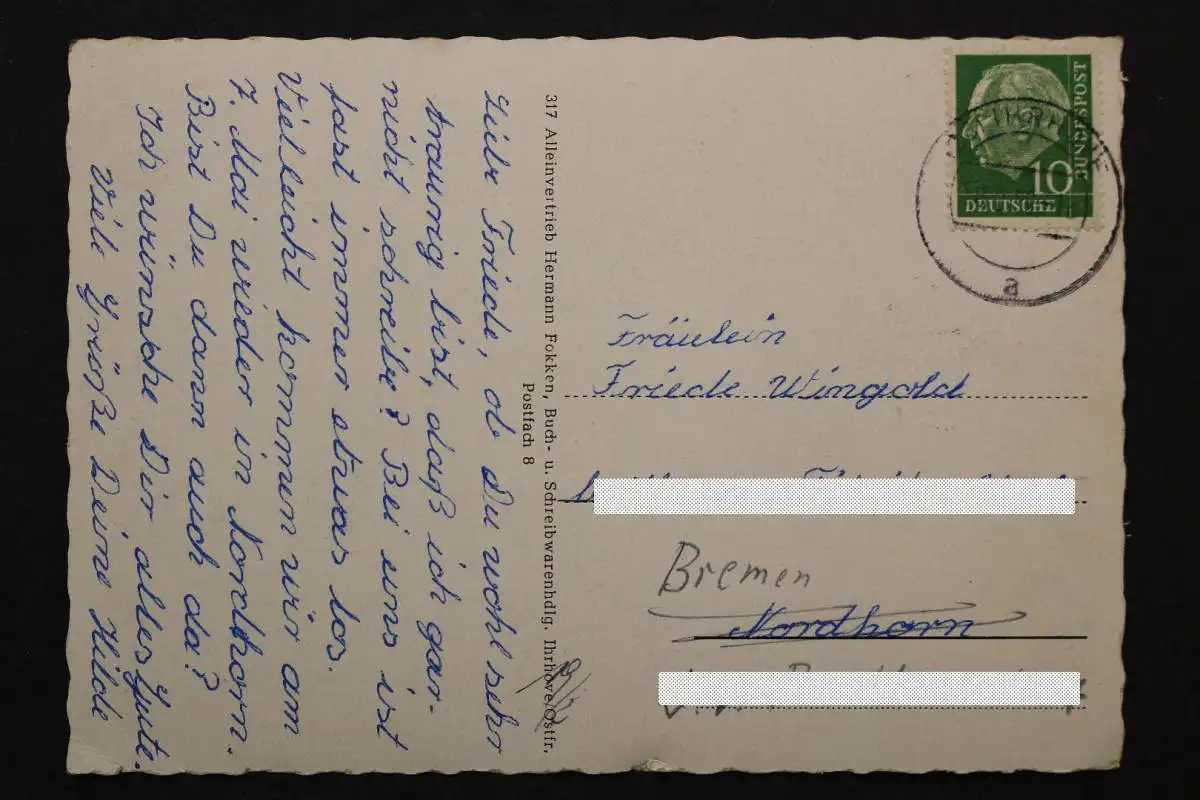 Liebe Friede, ob Du wohl sehr
traurig bist, daß ich gar-
nicht schreibe? Bei uns ist
fast immer etwas los.
Vielleicht kommen wir am
7. Mai wieder in Nordhorn.
Bist Du dann auch da?
Ich wünsche Dir alles Gute.
Viele Grüße Deine Hilde
317 Alleinvertrieb Hermann Fokken, Buch- u. Schreibwarenhdlg. Ihrhove/Ostfr,
Postfach 8
BUNDESPOST
10
DEUTSCHE
a
Fräulein
Friede Wingold
Bremen
Nordhorn